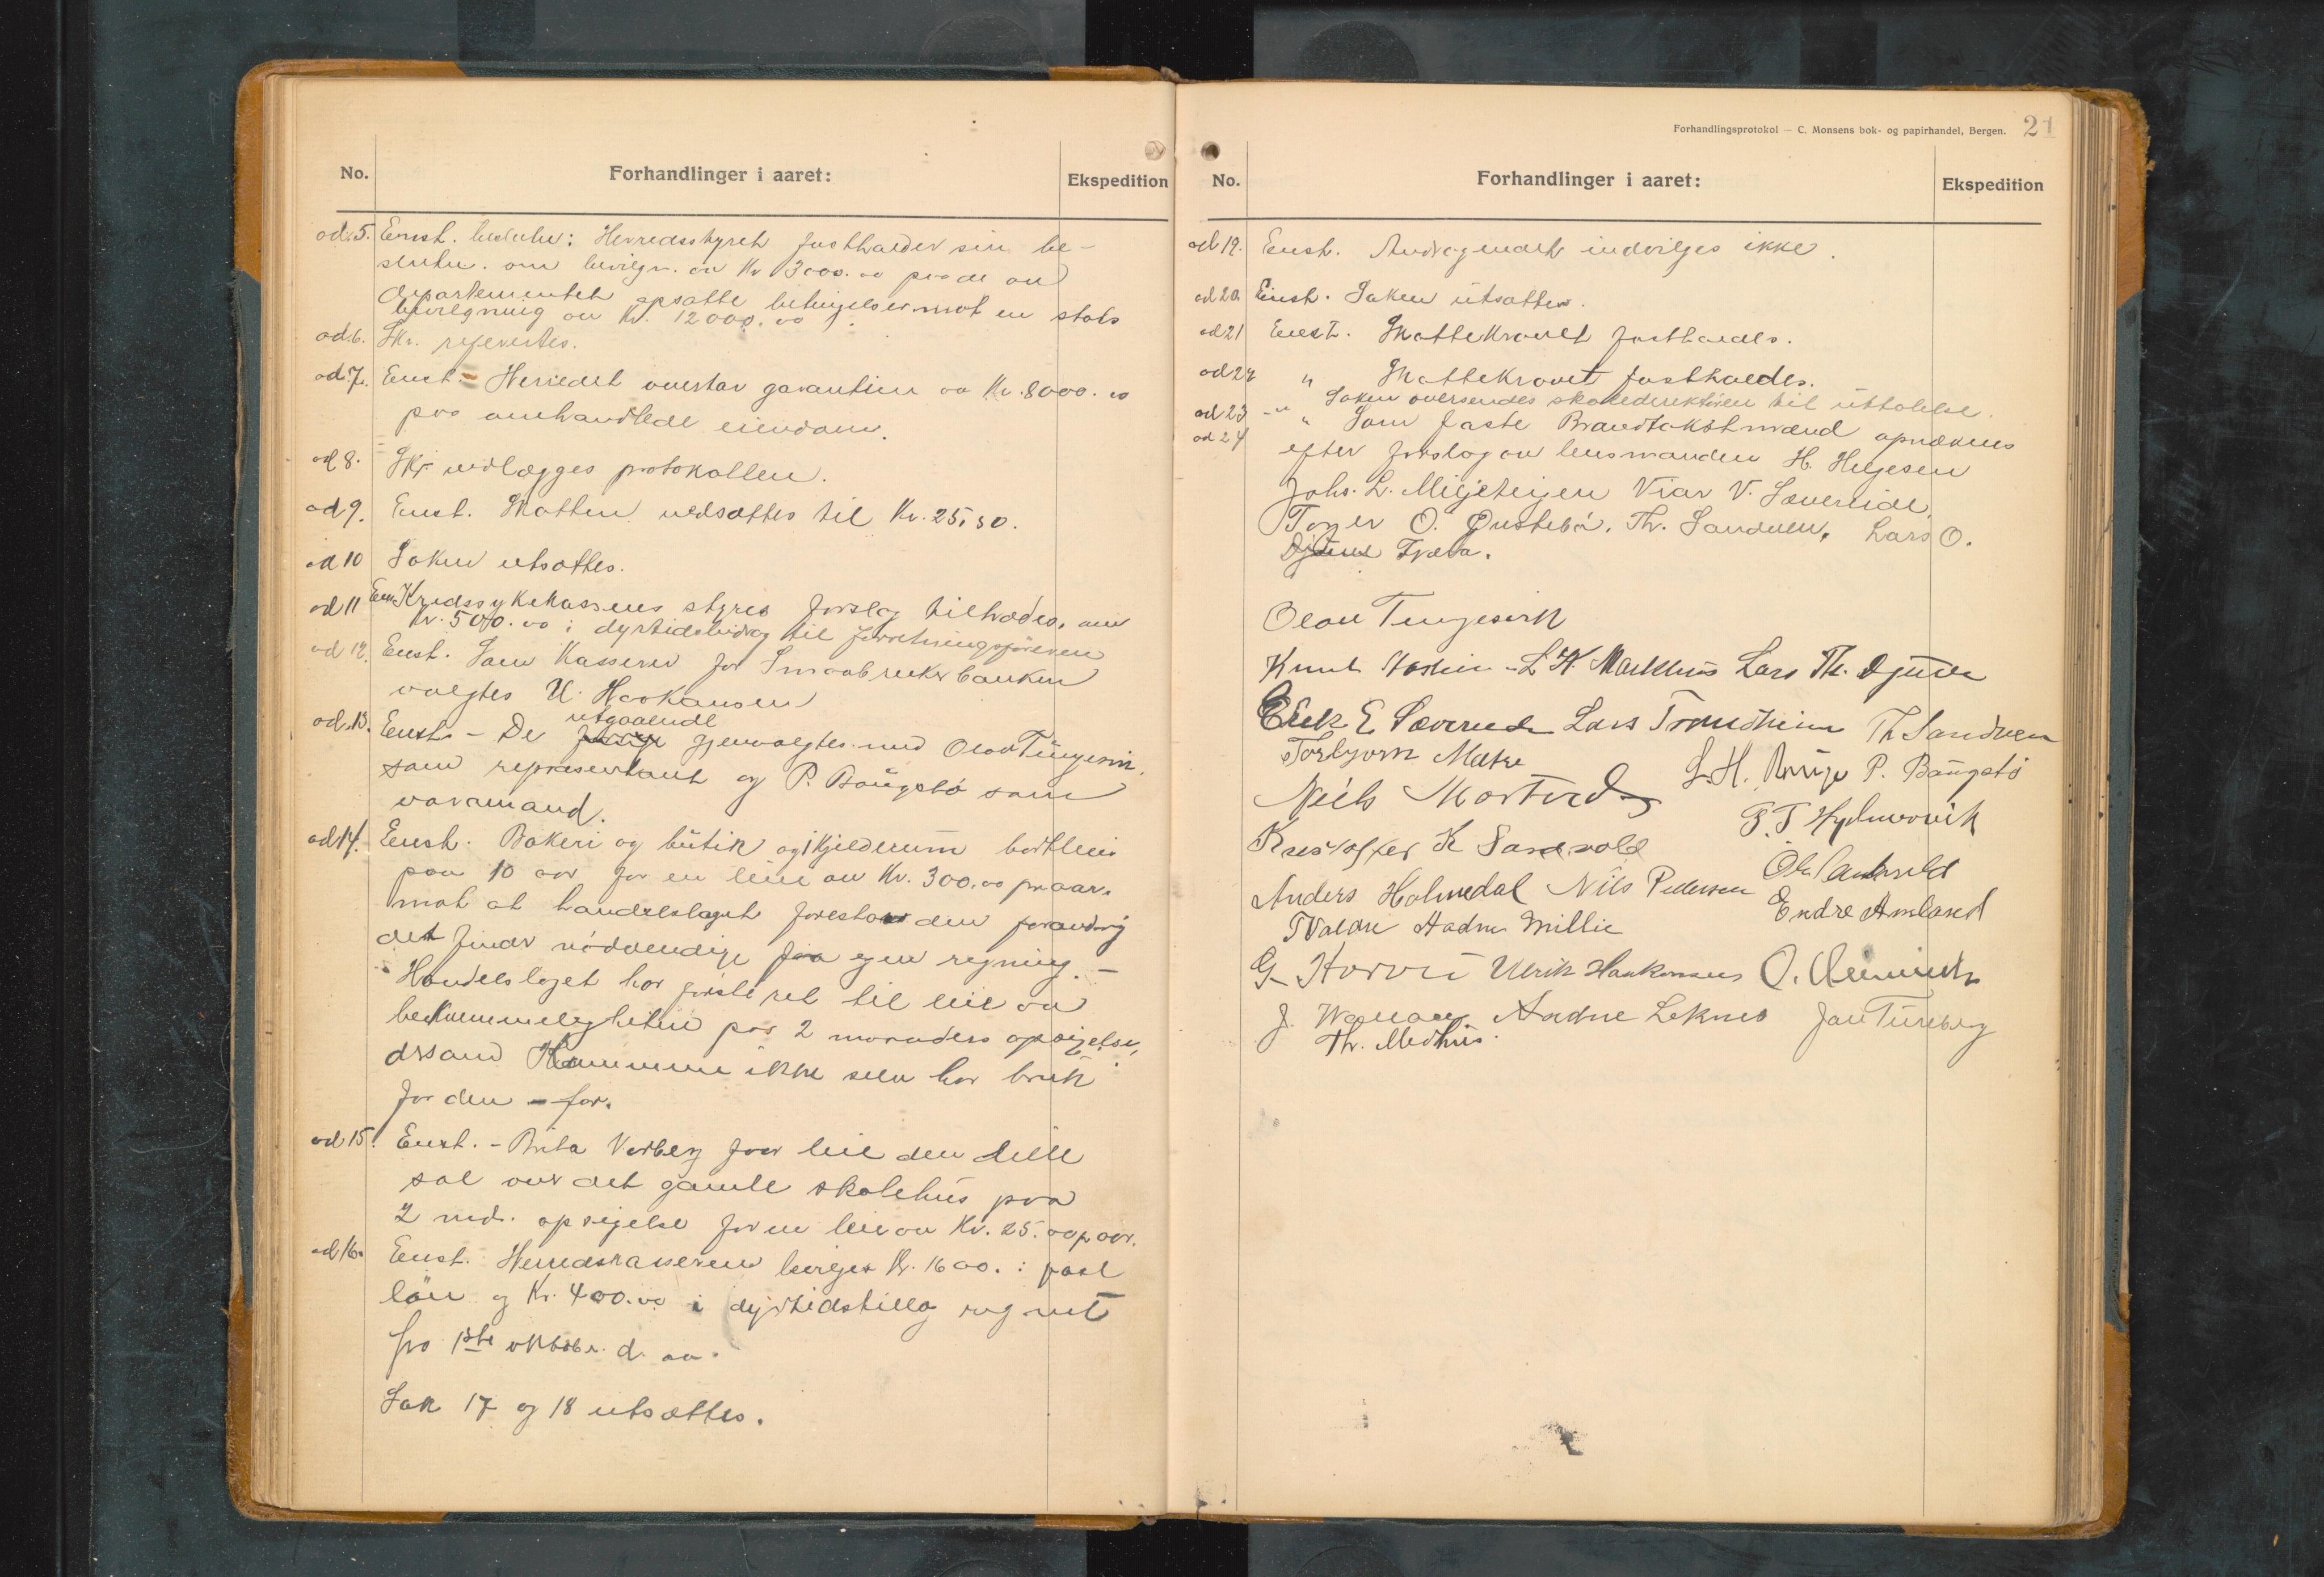 No. Forhandlinger i aaret: Ekspedition
ad.5. Enst. beslutn: Herredsstyret fastholder sin be-
slutn. om bevilgn. av Kr 3000.00 paa de av
departementet opsatte betingelser mot en stats
bevilgning av Kr. 12000.00
ad.6. Skr. refereertes.
ad.7. Enst. - Herredet overtar garantien av Kr. 8000.00
paa omhandlede eiendom.
ad 8. Skr. vedlægges protokollen.
ad 9. Enst. Skatten nedsættes til Kr. 25,50.
ad 10 Saken utsættes.
ad 11 Enst. Kredssykekassens styres forslag tiltrædes, om
Kr. 500.00 i dyrtidsbidrag til forretningsföreren
ad 12. Enst. Som Kasserer for Smaabrukerbanken
valgtes U. Haakonsen
utgaaende
ad.13. Enst. - De gjenvalgtes med Olav Tungesvik
som representant og P. Baugstö som
varamand.
ad 14. Enst. Bakeri og butik og kjelderum bortleies
paa 10 aar for en leie av Kr. 300.00 pr aar.
mot at handelslaget forestaar den forandring
det finder nödvendige for egen regning. -
Handelslaget har förste ret til leie av
bekvemmeligheten paa 2 maaneders opsigelse,
dersom Kommunen ikke selv har bruk
for den - for.
ad 15. Enst. - Brita Varberg faar leie den lille
sal over det gamle skolehus paa
2 mdr. opsigelse for en leie av Kr. 25.00 p aar.
ad 16. Enst. Herredskassereren bevilges Kr. 1600. i fast
lön og Kr. 400.00 i dyrtidstillæg regnet
fra 1ste oktober d. aa.
Sak 17 og 18 utsættes.
Forhandlingsprotokol — C. Monsens bok- og papirhandel, Bergen. 21
No. Forhandlinger i aaret: Ekspedition
ad 19. Enst. Andragendet indvilges ikke.
ad 20. Enst. Saken utsættes.
ad 21 Enst. Skattekravet fastholdes.
ad 22 " Skattekravet fastholdes.
ad 23 - " Saken oversendes skoledirektören til uttalelse.
ad 24 " Som faste Brandtakstmænd opnævnes
efter forslag av lensmanden H. Helgesen
Johs. L. Miljeteigen Viar V. Sævereide,
Torger O. Th. Sandven, Lars O.
Djuve Træta.
Olav Tungesvik
Knut L K. Markhus Lars Th. Djuve
Erik E Sæverud Lars Trondheim Th Sandven
Torbjorn Matre L. H. P. Baugstö
Niels
Kristoffer K Sandvold
Anders Holmedal Nils Pedersen Endre Amland
T Valdre Aadne Millie
G Ulrik Haakonsen O.
J. Aadne Leknes Jan Tureberg
Th. Medhus.